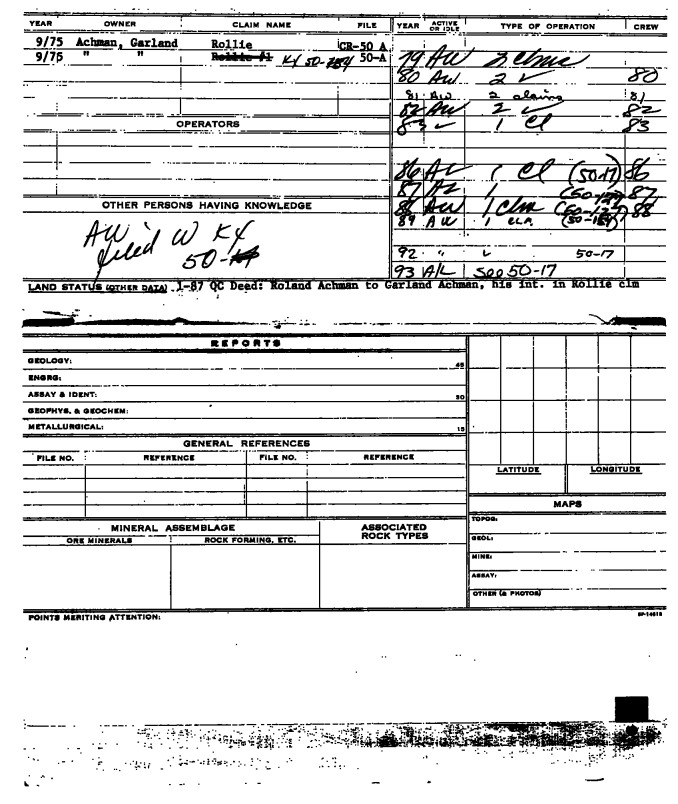 YEAR OWNER CLAIM NAME FILE YEAR ACTIVE OR IDLE TYPE OF OPERATION CREW
9/75 Achman, Garland Rollie CR-50 A
9/75 " " Rollie #1 KX 50-A 79 AW 2 clms
80 AW 2 ✓ 80
81 AW 2 claims 81
82 AW 2 ✓ 82
OPERATORS 83 ✓ 1 Cl 83
86 AL 1 Cl (50-17) 86
87 AL 1 87
OTHER PERSONS HAVING KNOWLEDGE 88 AW 1 Clm 88
89 AW 1 CLM
AW'd W KX
filed 50-
92 " ✓ 50-17
93 A/L See 50-17
LAND STATUS (OTHER DATA) 1-87 QC Deed: Roland Achman to Garland Achman, his int. in Rollie clm
REPORTS
GEOLOGY: 45
ENGRG:
ASSAY & IDENT: 30
GEOPHYS. & GEOCHEM:
METALLURGICAL: 15
GENERAL REFERENCES
FILE NO. REFERENCE FILE NO. REFERENCE
LATITUDE LONGITUDE
MAPS
TOPOG:
MINERAL ASSEMBLAGE ASSOCIATED ROCK TYPES
ORE MINERALS ROCK FORMING, ETC.
GEOL:
MINE:
ASSAY:
OTHER (& PHOTOS)
POINTS MERITING ATTENTION: